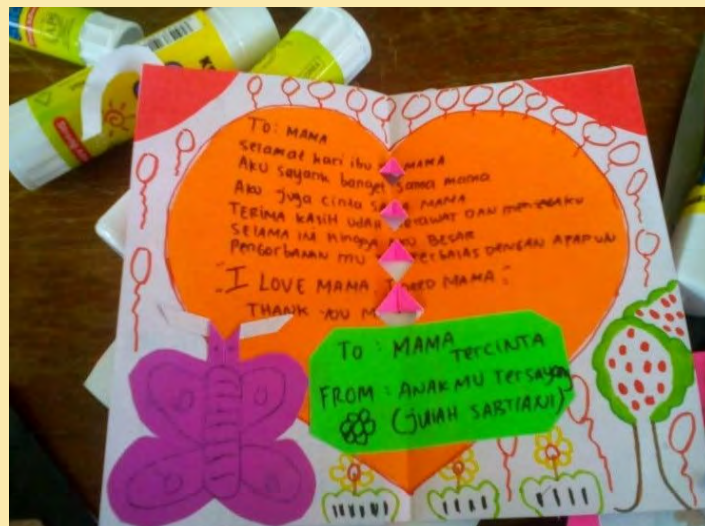 To: MAMA
selamat hari ibu MAMA
Aku sayank banget sama mama
Aku juga cinta MAMA
TERIMA KASIH UDAH DAN MENJAGAKU
SELAMA INI HINGGA AKU BESAR
PENGORBANAN MU DENGAN APAPUN
"I LOVE MAMA, MAMA"
THANK YOU
TO : MAMA
TERCINTA
FROM : ANAKMU TERSAYANG
(JULIAH SABTIANI)